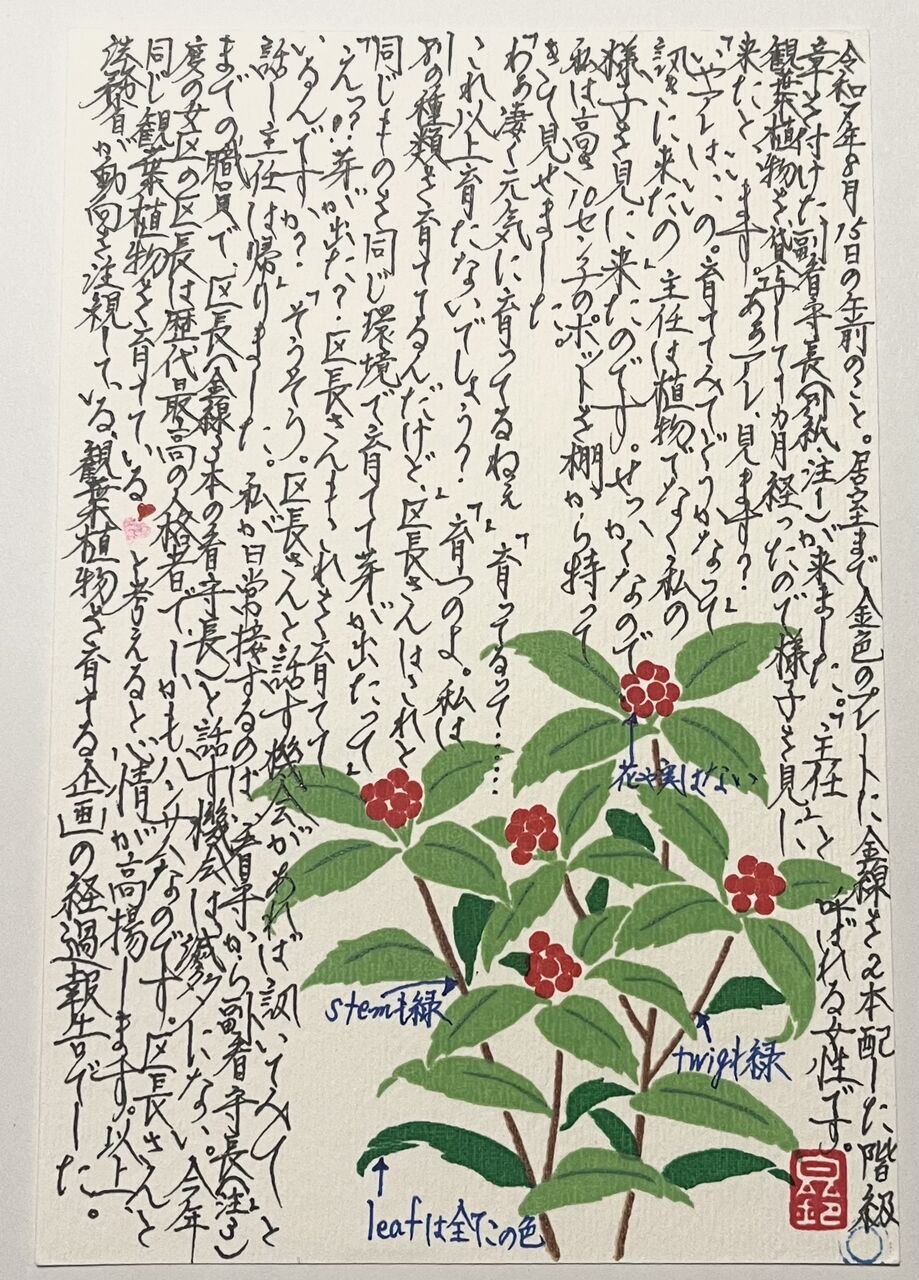 令和7年8月15日の午前のこと。居室まで金色のプレートに金線を2本配した階級
章を付けた副看守長(別紙、注1)が来ました。「主任」と呼ばれる女性です。
観葉植物を貸与して1カ月経ったので様子を見に
来たと言います。「あぁアレ、見ます?」
「いやアレはいいの。育ててみてどうかなって
訊きに来たの」主任は植物でなく私の
様子を見に来たのです。せっかくなので
私は高さ10センチのポットを棚から持って
きて見せました。
「わぁ凄く元気に育ってるねぇ」「育ってるって……
これ以上育たないでしょう?」「育つのよ。私は
別の種類を育ててるんだけど、区長さんはこれと
同じものを同じ環境で育てて芽が出たって」
「えっ??芽が出た?区長さんもこれを育てて
いるんですか?」「そうそう。区長さんと話す機会があれば訊いてみて」と
話し主任は帰りました。私が日常接するのは看守から副看守長(注2、3)
までの職員で、区長(金線3本の看守長)と話す機会は滅多にない。今年
度の女区の区長は歴代最高の人格者で、しかもハンサムなのです。区長さんと
同じ観葉植物を育てている♥と考えると心情が高揚します。以上、
読者が動向を注視している、観葉植物を育てる企画の経過報告でした。
花や実はない
stemも緑
twigも緑
leafは全てこの色